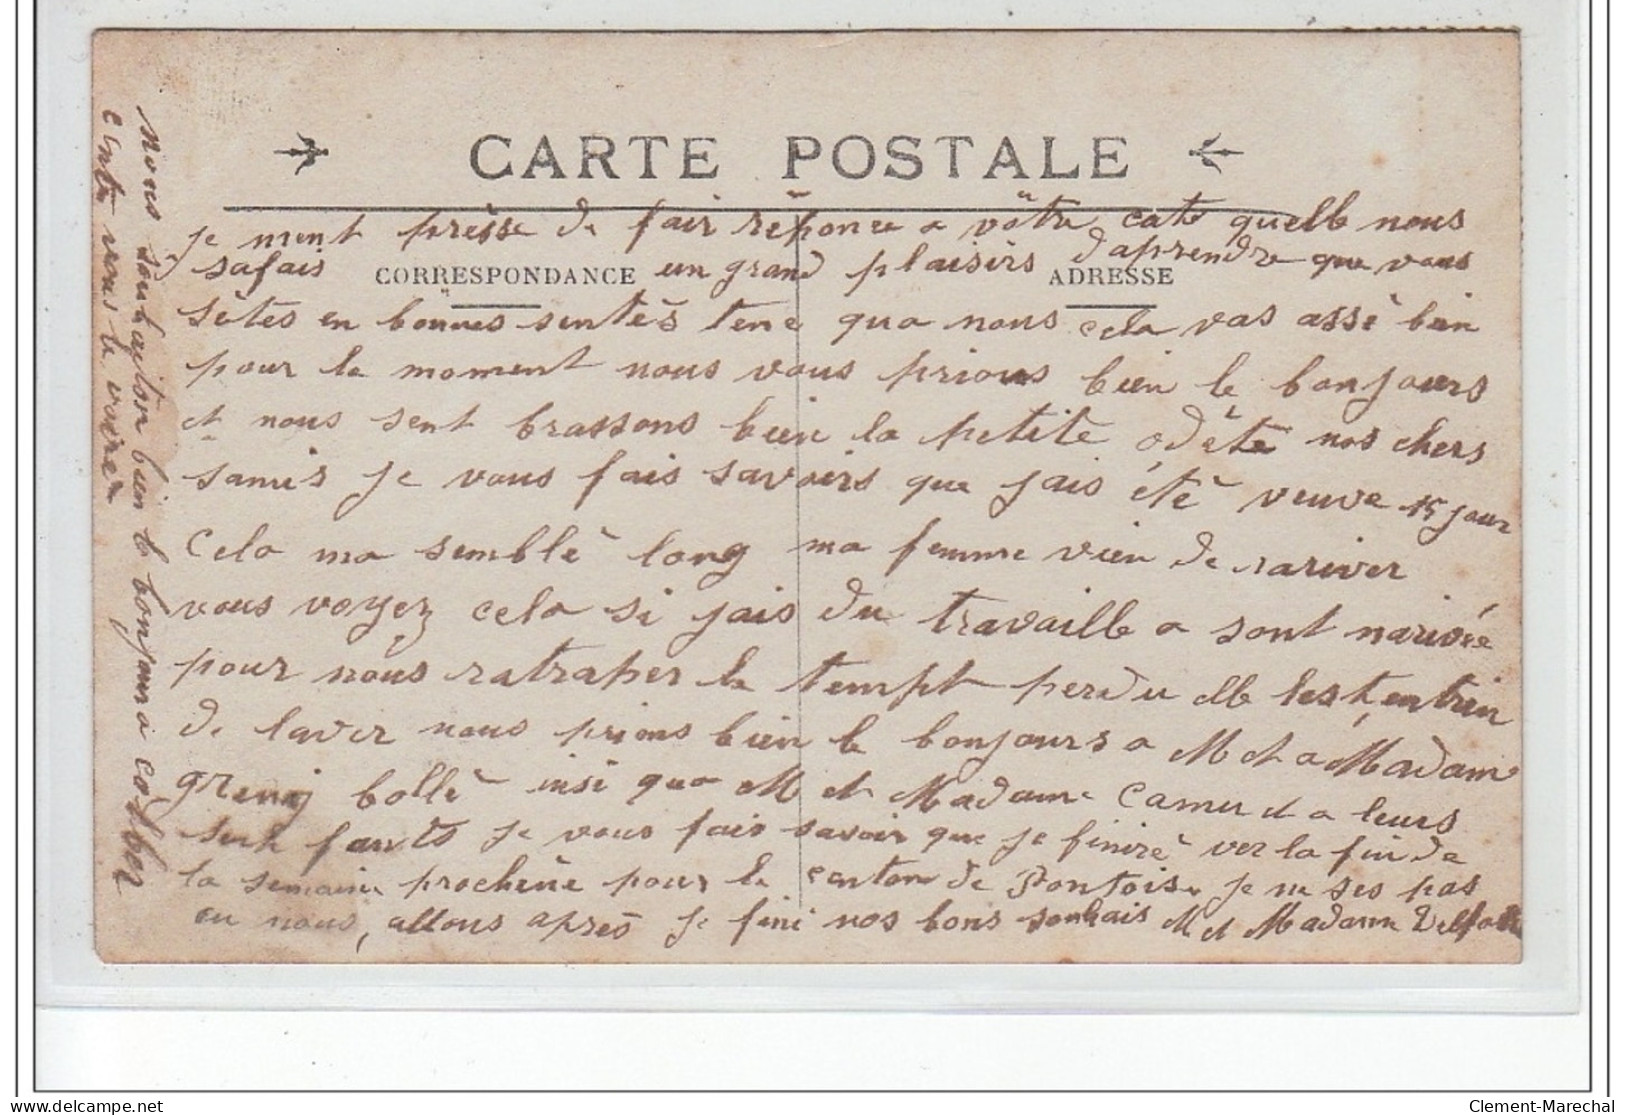 CARTE POSTALE
je ment prèsse de fair rèponce a vôtre cate quelle nous
safais un grand plaisirs d'aprendre que vous
CORRESPONDANCE ADRESSE
sètes en bonnes sentès tene qua nous cela vas assè bien
pour le moment nous vous prions bien le bonjours
et nous sent brassons bien la petite odète nos chers
samis je vous fais savoirs que jais étè veuve 15 jour
Cela ma semblè long ma femme vien de rariver
vous voyez cela si jais du travaille a sont narivée
pour nous ratraper le tempt perdu elle lest, entrin
de laver nous prions bien le bonjours a M et a Madame
bollè insi qua M et Madame Camu et a leurs
senh fants je vous fais savoir que je finirè ver la fin de
la semaine prochène pour le canton de Pontoise je ne ses pas
ou nous, allons après je fini nos bons souhais M et Madame
Nous souhaiton bien le bonjour a
ente vous le voire
Clement-Marechal
delcampe.net